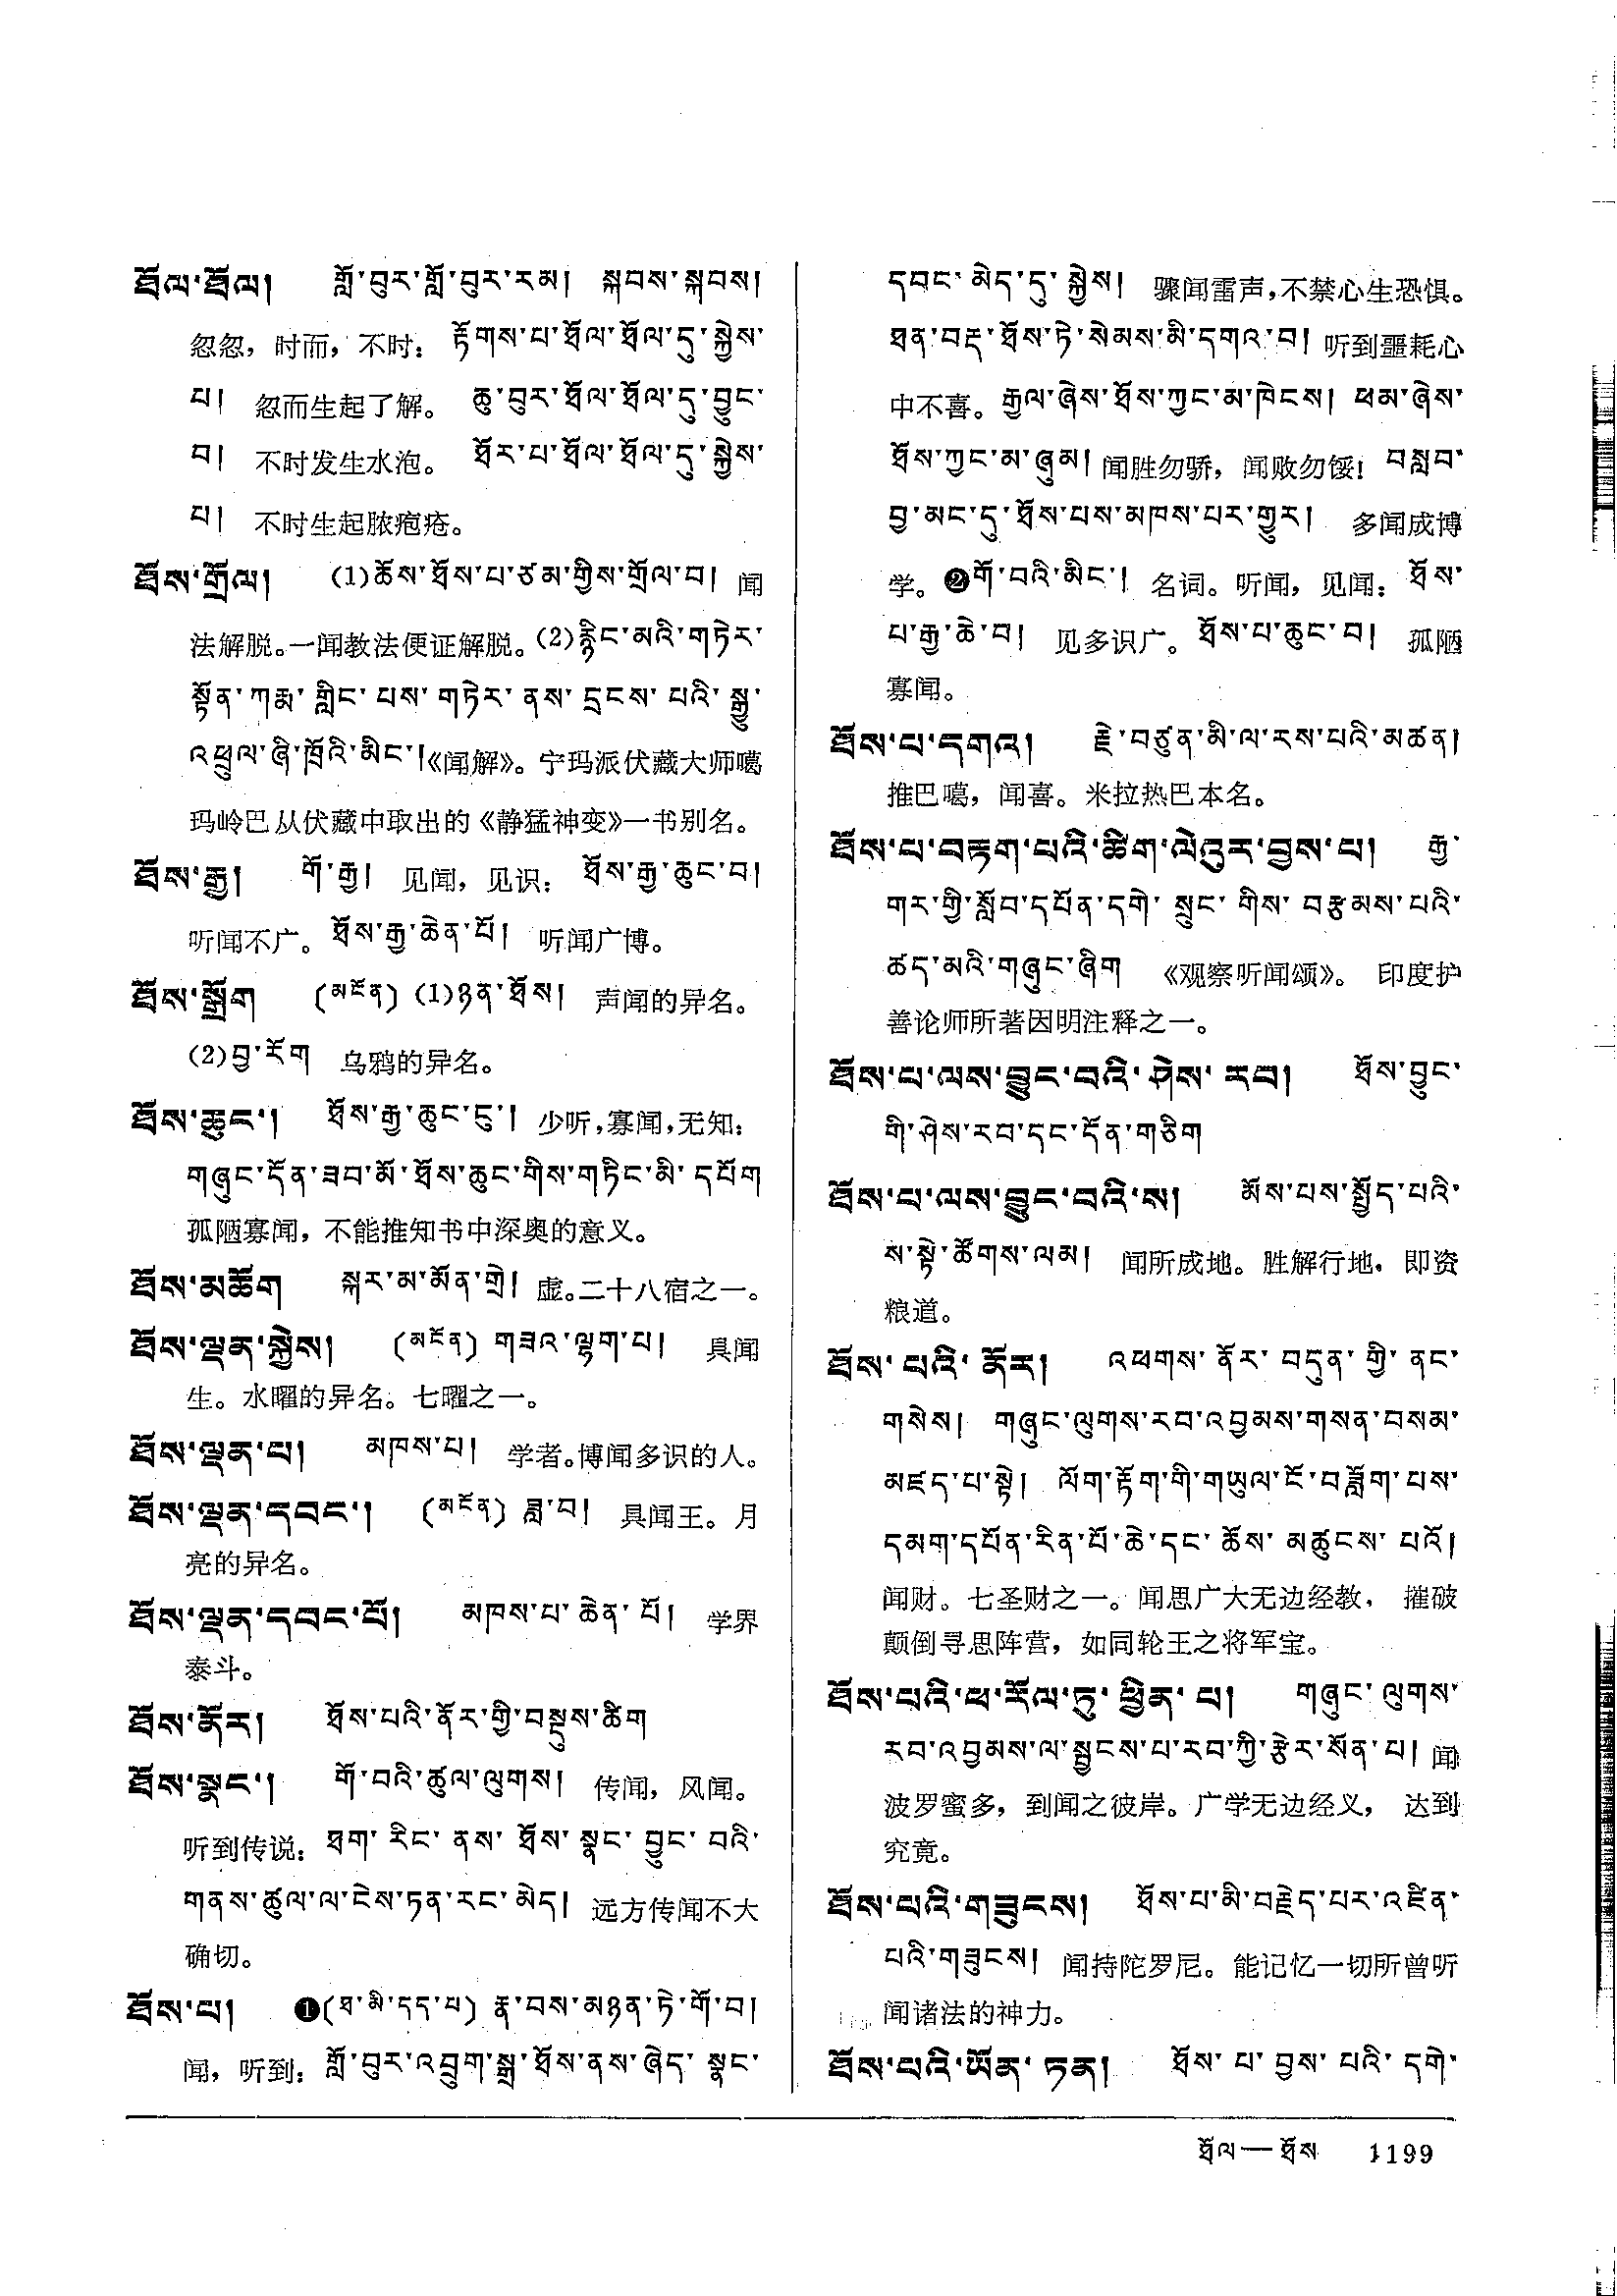 ཐོལ་ཐོལ། གློ་བུར་གློ་བུར་རམ། སྐབས་སྐབས།
忽忽，时而，不时：རྟོགས་པ་ཐོལ་ཐོལ་དུ་སྐྱེས་
པ། 忽而生起了解。 ཆུ་བུར་ཐོལ་ཐོལ་དུ་བྱུང་
བ། 不时发生水泡。 ཐོར་པ་ཐོལ་ཐོལ་དུ་སྐྱེས་
པ། 不时生起脓疱疮。
ཐོས་གྲོལ། (1)ཆོས་ཐོས་པ་ཙམ་གྱིས་གྲོལ་བ། 闻
法解脱。一闻教法便证解脱。(2)རྙིང་མའི་གཏེར་
སྟོན་ཀརྨ་གླིང་པས་གཏེར་ནས་དྲངས་པའི་སྒྱུ་
འཕྲུལ་ཞི་ཁྲོའི་མིང་།《闻解》。宁玛派伏藏大师噶
玛岭巴从伏藏中取出的《静猛神变》一书别名。
ཐོས་རྒྱ། གོ་རྒྱ། 见闻，见识：ཐོས་རྒྱ་ཆུང་བ།
听闻不广。ཐོས་རྒྱ་ཆེན་པོ། 听闻广博。
ཐོས་སྒྲོག (མངོན) (1)ཉན་ཐོས། 声闻的异名。
(2)བྱ་རོག 乌鸦的异名。
ཐོས་ཆུང་། ཐོས་རྒྱ་ཆུང་ངུ་། 少听，寡闻，无知：
གཞུང་དོན་ཟབ་མོ་ཐོས་ཆུང་གིས་གཏིང་མི་དཔོག
孤陋寡闻，不能推知书中深奥的意义。
ཐོས་མཆོག སྐར་མ་མོན་གྲེ། 虚。二十八宿之一。
ཐོས་ལྡན་སྐྱེས། (མངོན) གཟའ་ལྷག་པ། 具闻
生。水曜的异名。七曜之一。
ཐོས་ལྡན་པ། མཁས་པ། 学者。博闻多识的人。
ཐོས་ལྡན་དབང་། (མངོན) ཟླ་བ། 具闻王。月
亮的异名。
ཐོས་ལྡན་དབང་པོ། མཁས་པ་ཆེན་པོ། 学界
泰斗。
ཐོས་ནོར། ཐོས་པའི་ནོར་གྱི་བསྡུས་ཚིག
ཐོས་སྣང་། གོ་བའི་ཚུལ་ལུགས། 传闻，风闻。
听到传说：ཐག་རིང་ནས་ཐོས་སྣང་བྱུང་བའི་
གནས་ཚུལ་ལ་ངེས་ཏན་རང་མེད། 远方传闻不大
确切。
ཐོས་པ། ❶(ཐ་མི་དད་པ) རྣ་བས་མཉན་ཏེ་གོ་བ།
闻，听到：གློ་བུར་འབྲུག་སྒྲ་ཐོས་ནས་ཞེད་སྣང་
དབང་མེད་དུ་སྐྱེས། 骤闻雷声，不禁心生恐惧。
ཐན་བརྡ་ཐོས་ཏེ་སེམས་མི་དགའ་བ། 听到噩耗心
中不喜。རྒྱལ་ཞེས་ཐོས་ཀྱང་མ་ཁེངས། ཕམ་ཞེས་
ཐོས་ཀྱང་མ་ཞུམ། 闻胜勿骄，闻败勿馁！ བསླབ་
བྱ་མང་དུ་ཐོས་པས་མཁས་པར་གྱུར། 多闻成博
学。❷གོ་བའི་མིང་། 名词。听闻，见闻：ཐོས་
པ་རྒྱ་ཆེ་བ། 见多识广。ཐོས་པ་ཆུང་བ། 孤陋
寡闻。
ཐོས་པ་དགའ། རྗེ་བཙུན་མི་ལ་རས་པའི་མཚན།
推巴噶，闻喜。米拉热巴本名。
ཐོས་པ་བརྟག་པའི་ཚིག་ལེའུར་བྱས་པ། རྒྱ་
གར་གྱི་སློབ་དཔོན་དགེ་སྲུང་གིས་བརྩམས་པའི་
ཚད་མའི་གཞུང་ཞིག 《观察听闻颂》。 印度护
善论师所著因明注释之一。
ཐོས་པ་ལས་བྱུང་བའི་ཤེས་རབ། ཐོས་བྱུང་
གི་ཤེས་རབ་དང་དོན་གཅིག
ཐོས་པ་ལས་བྱུང་བའི་ས། མོས་པས་སྤྱོད་པའི་
ས་སྟེ་ཚོགས་ལམ། 闻所成地。胜解行地，即资
粮道。
ཐོས་པའི་ནོར། འཕགས་ནོར་བདུན་གྱི་ནང་
གསེས། གཞུང་ལུགས་རབ་འབྱམས་གསན་བསམ་
མཛད་པ་སྟེ། ལོག་རྟོག་གི་གཡུལ་ངོ་བཟློག་པས་
དམག་དཔོན་རིན་པོ་ཆེ་དང་ཆོས་མཚུངས་པའོ།
闻财。七圣财之一。闻思广大无边经教， 摧破
颠倒寻思阵营，如同轮王之将军宝。
ཐོས་པའི་ཕ་རོལ་ཏུ་ཕྱིན་པ། གཞུང་ལུགས་
རབ་འབྱམས་ལ་སྦྱངས་པ་རབ་ཀྱི་རྩེར་སོན་པ། 闻
波罗蜜多，到闻之彼岸。广学无边经义， 达到
究竟。
ཐོས་པའི་གཟུངས། ཐོས་པ་མི་བརྗེད་པར་འཛིན་
པའི་གཟུངས། 闻持陀罗尼。能记忆一切所曾听
闻诸法的神力。
ཐོས་པའི་ཡོན་ཏན། ཐོས་པ་བྱས་པའི་དགེ་
ཐོལ—ཐོས 1199